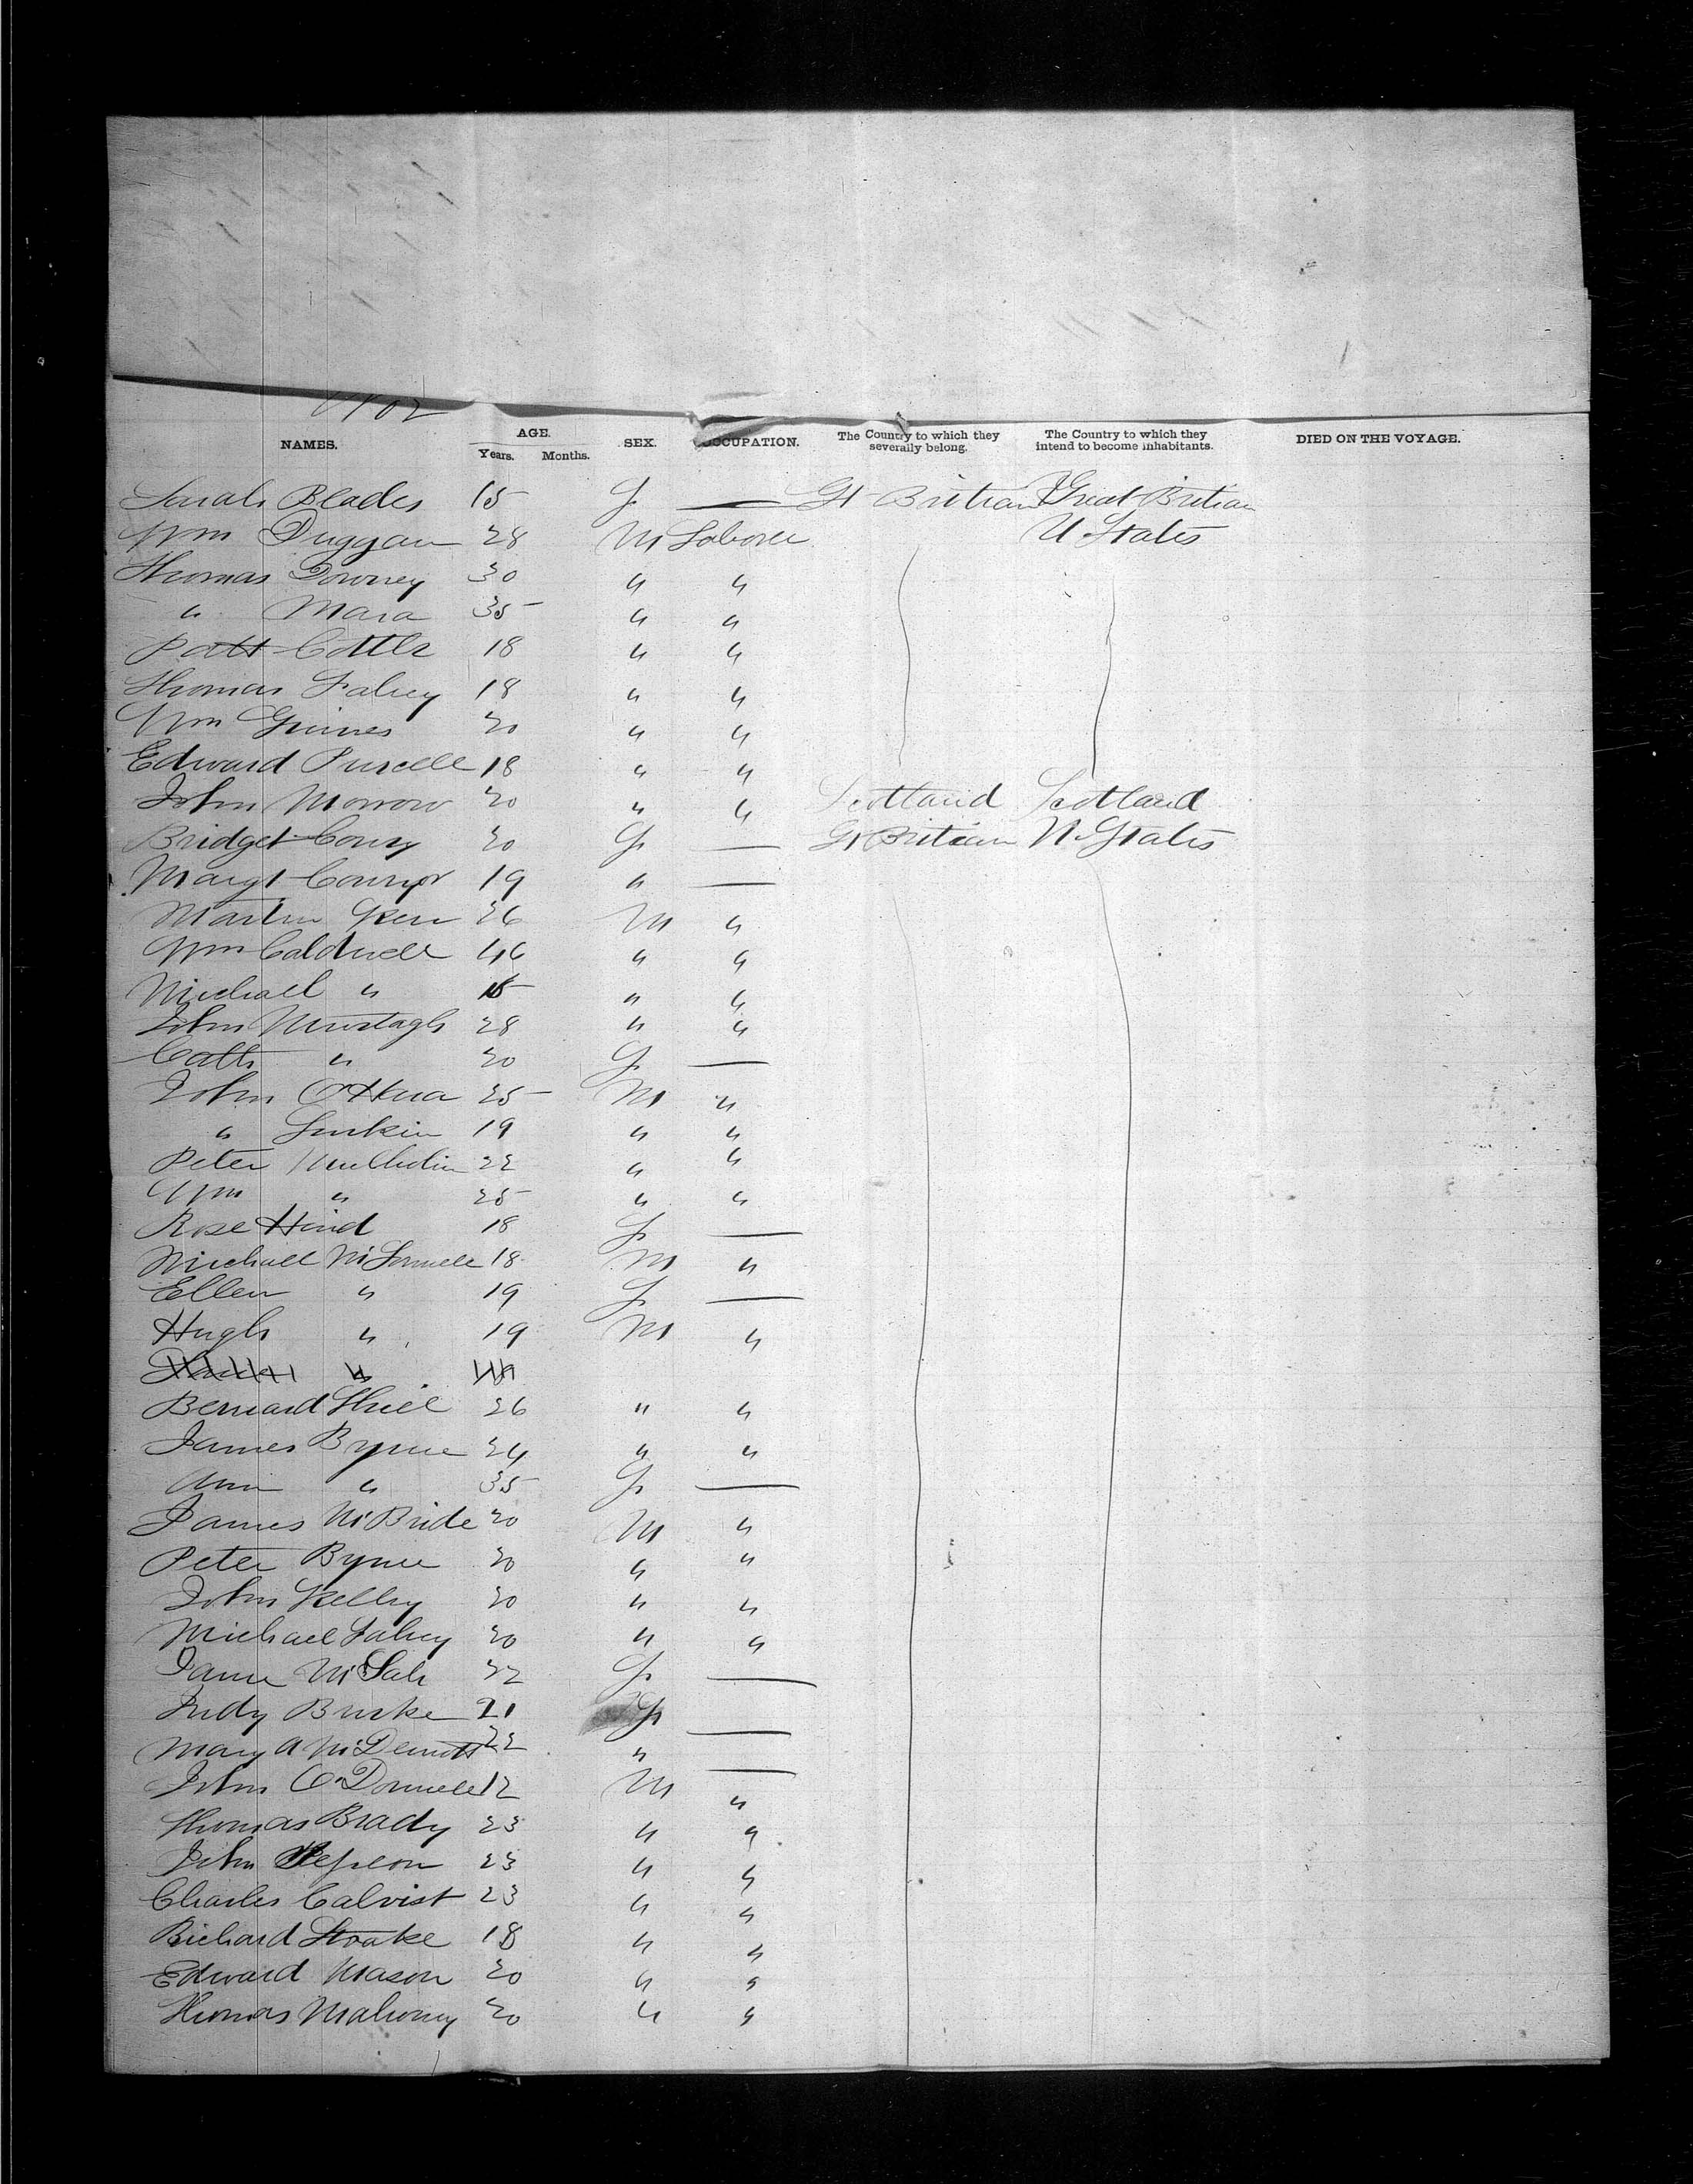 NAMES. AGE. Years. Months. SEX. OCCUPATION. The Country to which they severally belong. The Country to which they intend to become inhabitants. DIED ON THE VOYAGE.
Sarah Blades 15 f — Gt Britian Great Britian
Wm Duggan 28 M Laborer U States
Thomas Downey 30 " "
" Mara 35 " "
Patt Cottle 18 " "
Thomas Fahey 18 " "
Wm Grimes 20 " "
Edward Purcell 18 " "
John Morrow 20 " " Scotland Scotland
Bridget Conry 20 f — Gt Britian U States
Margt Connor 19 " —
Martin Kerr 26 M "
Wm Caldwell 46 " "
Michael " 15 " "
John Murtagh 28 " "
Cath " 20 f —
John O'Hera 25 M "
" Larkin 19 " "
Peter 22 " "
Wm " 25 " "
Rose Hind 18 f —
Michael 18 M "
Ellen " 19 f —
Hugh " 19 M "
Bernard Shiel 26 " "
James Byrne 24 " "
Ann " 35 f —
James McBride 20 M "
Peter Byrne 20 " "
John Kelly 20 " "
Michael Fahey 20 " "
Jane 22 f —
Judy Burke 21 f —
Mary A McDermott 22 " —
John O'Donnell 12 M "
Thomas Brady 23 " "
John 23 " "
Charles Calvist 23 " "
Richard Stoake 18 " "
Edward Mason 20 " "
Thomas Mahony 20 " "